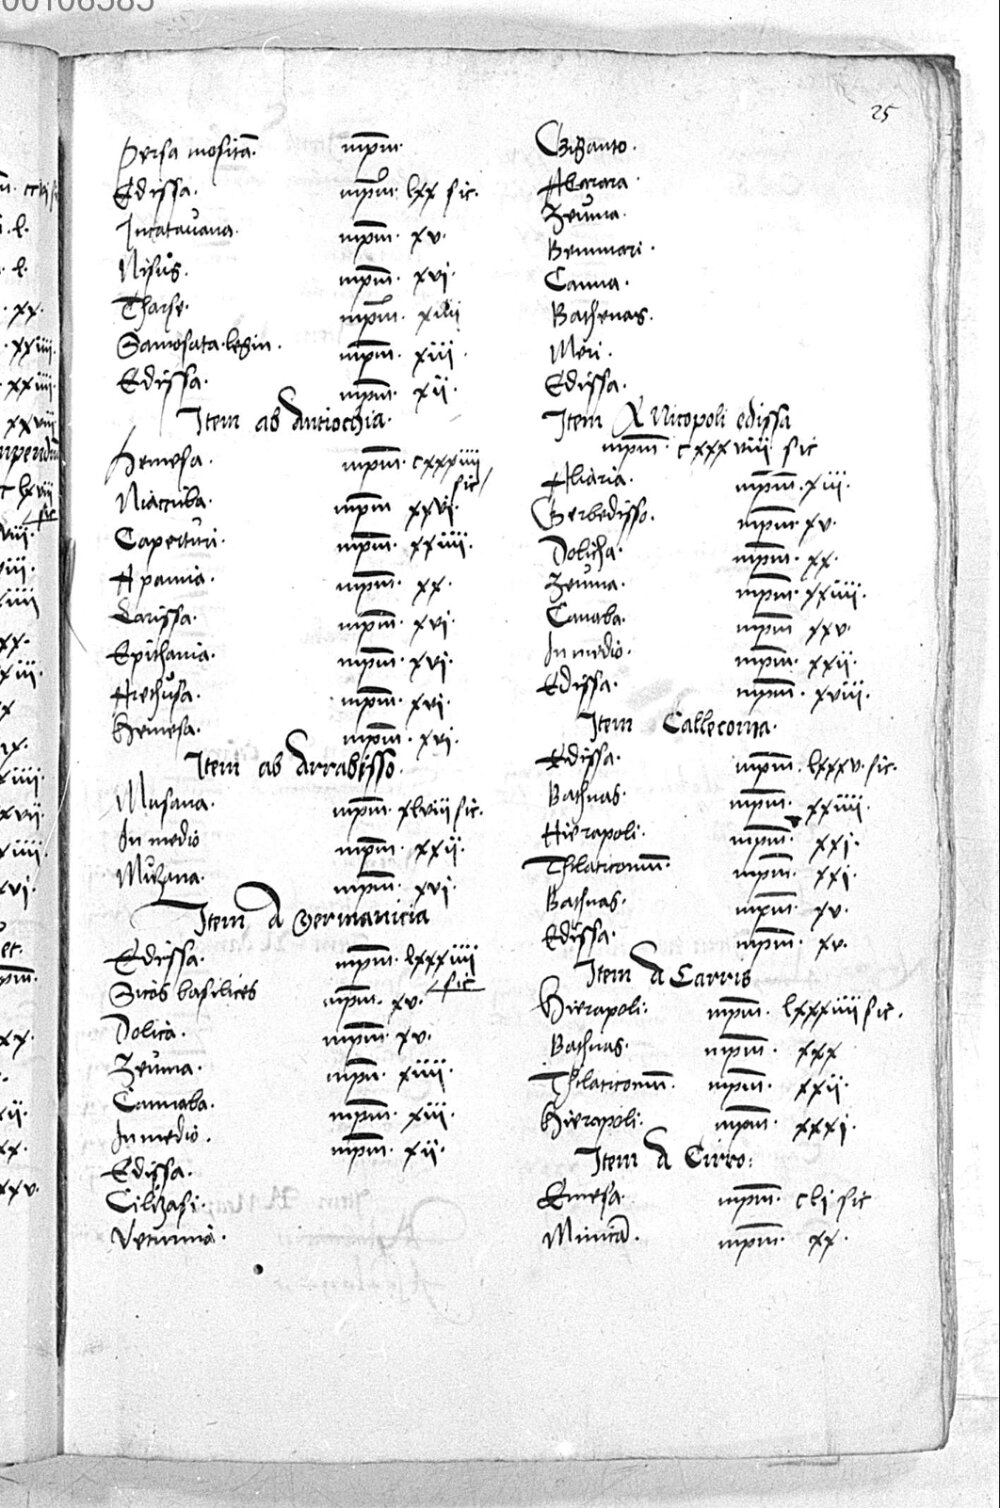 25
Persa mositā. mpm̄.
Edissa. mpm̄. lxx sic.
Incatauana. mpm̄. xv.
Nisus. mpm̄. xvi.
Tharse. mpm̄. xiiii
Samosata. legin. mpm̄. xiii.
Edissa. mpm̄. xii.
Item ab Antiochia.
Hemesa. mpm̄. cxxxiiii
sic
Niaccuba. mpm̄ xxvi.
Caperturi. mpm̄. xxiiii.
Apamia. mpm̄. xx.
Larissa. mpm̄. xvi.
Epithania. mpm̄. xvi.
Arethusa. mpm̄. xvi.
Hemesa. mpm̄. xvi.
Item ab Arrabisso.
Musana. mpm̄. xlviii sic.
In medio mpm̄. xxii.
Muzana. mpm̄. xvi.
Item A Germanicia
Edissa. mpm̄. lxxxiiii
sic
Sicos basilices mpm̄. xv.
Dolica. mpm̄. xv.
Zeuma. mpm̄. xiiii.
Cannaba. mpm̄. xiii.
In medio. mpm̄. xii.
Edissa.
Cilizasi.
Vecunnia.
Gizanto.
Abarara.
Zeuma.
Bemmari.
Canna.
Bathenas.
Meri.
Edissa.
Item A Nicopoli edissa
mpm̄. cxxxviii sic
Aliaria. mpm̄. xiii.
Gerbedisso. mpm̄. xv.
Dolicha. mpm̄. xx.
Zeuma. mpm̄. xxiiii.
Canaba. mpm̄ xxv.
In medio. mpm̄. xxii.
Edissa. mpm̄. xviii.
Item Callecoma.
Edissa. mpm̄. lxxxv. sic.
Bathnas. mpm̄. xxiiii.
Hierapoli. mpm̄. xxi.
Thilaticomum. mpm̄. xxi.
Bathnas. mpm̄. xv.
Edissa. mpm̄. xv.
Item A Carris
Hierapoli. mpm̄. lxxxiiii sic.
Bathnas. mpm̄. xxx
Thilaticomum. mpm̄. xxii.
Hierapoli. mpm̄. xxxi.
Item A Cirro:
Emesa. mpm̄. cli sic
Minica. mpm̄. xx.